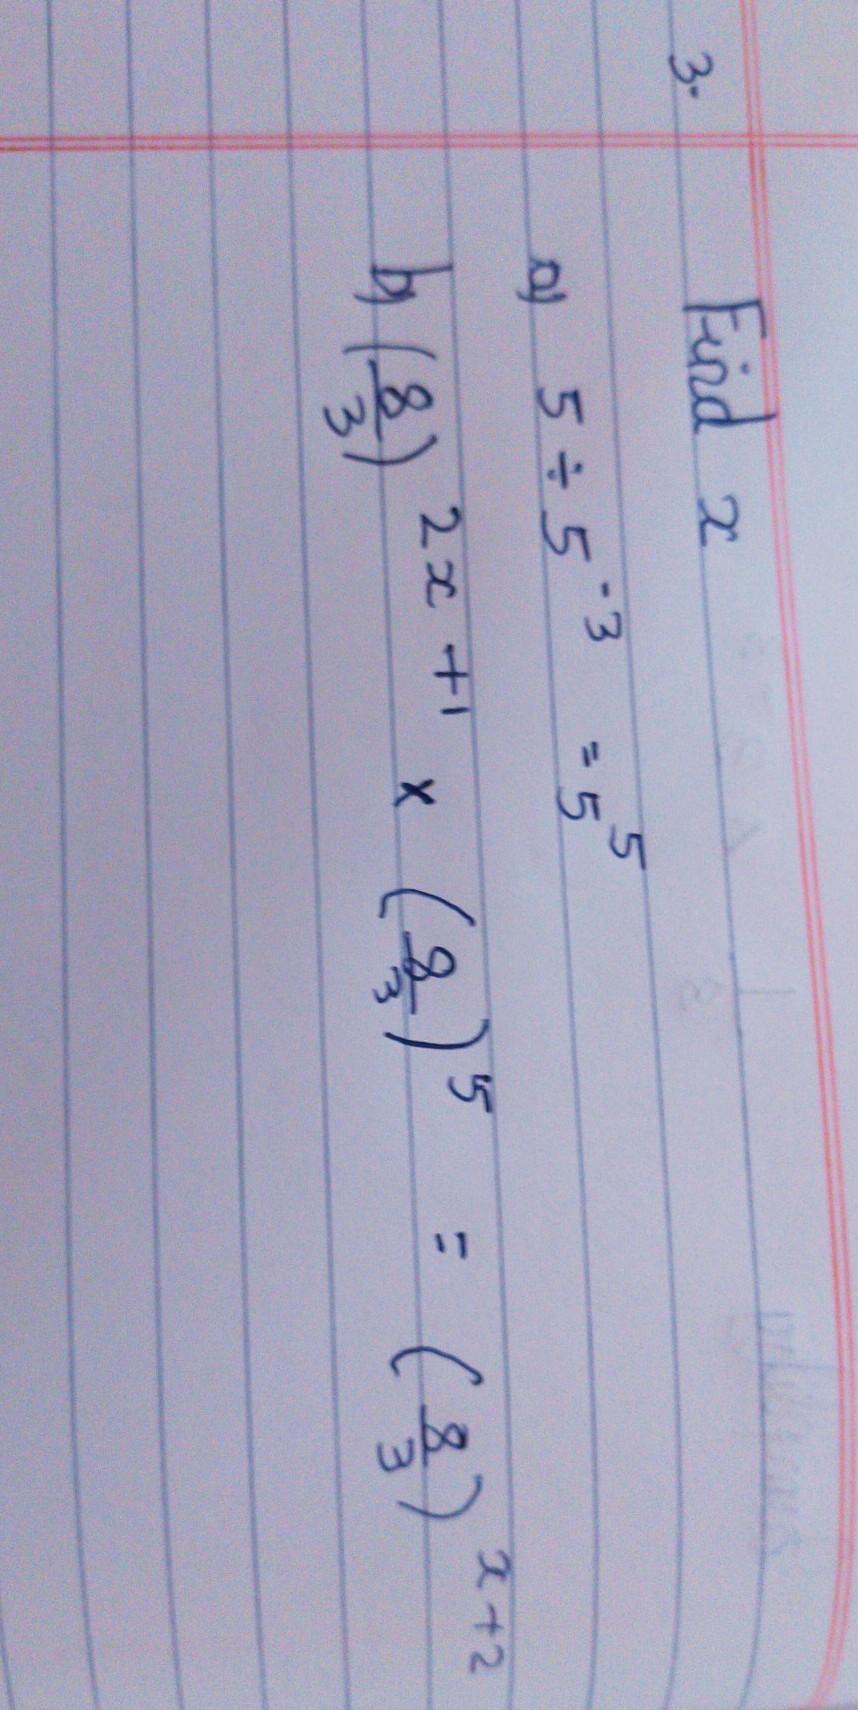 3. Find x
a) 5 ÷ 5⁻³ = 5⁵
b) (8/3)²ˣ⁺¹ × (8/3)⁵ = (8/3)ˣ⁺²